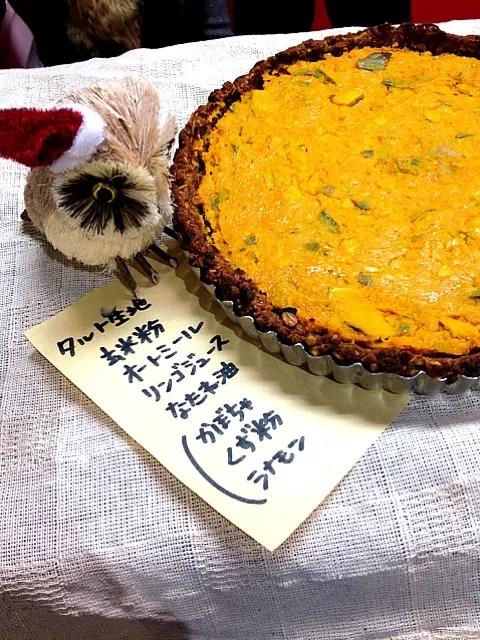 タルト生地
玄米粉
オートミール
リンゴジュース
なたね油
かぼちゃ
くず粉
シナモン